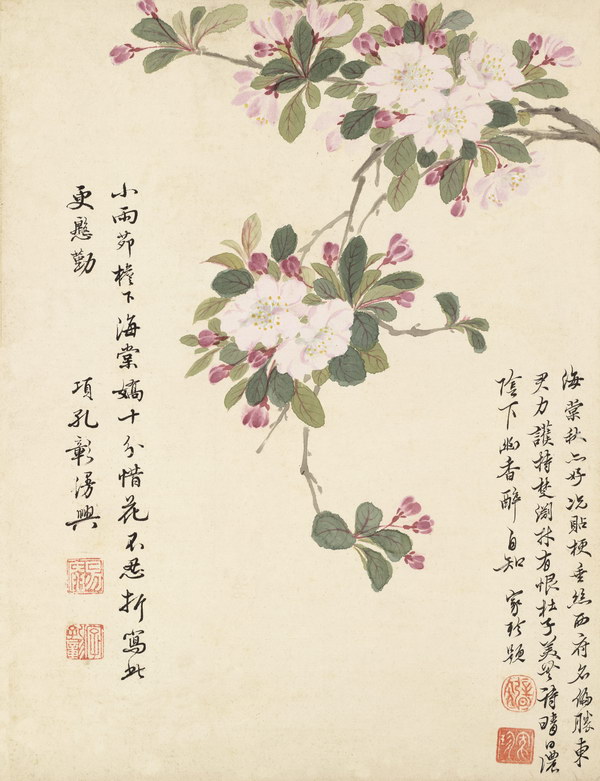 海棠秋亦好況貼梗垂絲西府名偏勝東
君力護持淵材有恨杜子美無詩晴日濃
陰下幽香醉自知 家珍題
小雨茆檐下海棠嬌十分惜花不忍折寫此
更慇勤 項孔彰漫興